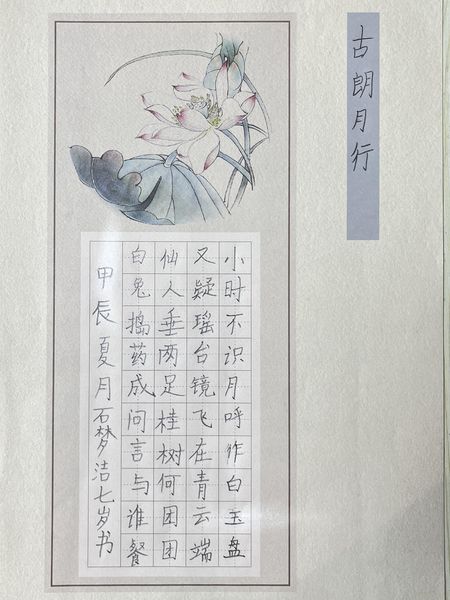 古朗月行
小时不识月呼作白玉盘
又疑瑶台镜飞在青云端
仙人垂两足桂树何团团
白兔捣药成问言与谁餐
甲辰夏月石梦洁七岁书